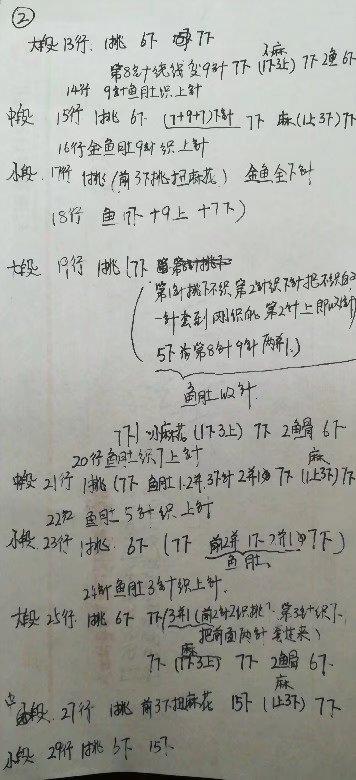 ②
大段13行. 1挑 6下 7下
第8针绕线变9针 7下 (1下3上) 7下 2鱼 6下
小麻
14行 9针鱼肚织上针
中段 15行 1挑 6下 (7+9+7)下针 7下 麻(1上3下)7下
16行金鱼肚9针织上针
小段. 17行 1挑 (前3下挑扭麻花) 金鱼全下针
18行 鱼 (7下+9上+7下)
大段 19行 1挑 (7下
(第1针挑下不织, 第2针织下针把不织的
一针套到刚织的, 第2针上即收针
5下 第8针9针两并1.)
鱼肚收2针.
7下 小麻花 (1下3上) 7下 2鱼骨 6下
20行鱼肚织7上针
中段 21行 1挑 (7下 鱼肚1.2并.3下针 2并1 7下 麻(1上3下)7下
22行 鱼肚5针织上针
小段. 23行 1挑. 6下 (7下 前2并 1下 2并1 7下)
鱼肚.
24行鱼肚3针织上针.
大段 25行. 1挑 6下 7下 (3并1 (前2针不织挑下. 第3针织下.
把前面两针套过来)
7下 麻(1下3上) 7下 2鱼骨 6下.
中段. 27行 1挑 前3下扭麻花 15下 麻(1上3下) 7下
小段 29行 1挑 3下 15下.